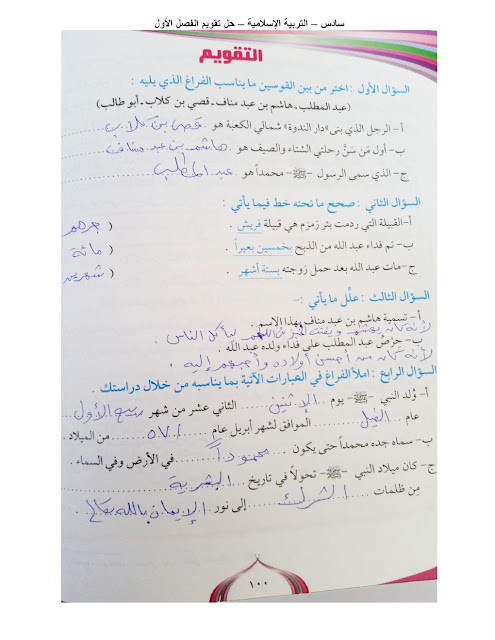 سادس – التربية الإسلامية – حل تقويم الفصل الأول
التقويم
السؤال الأول : اختر من بين القوسين ما يناسب الفراغ الذي يليه :
(عبد المطلب ـ هاشم بن عبد مناف ـ قصي بن كلاب ـ أبو طالب)
أ- الرجل الذي بنى «دار الندوة» شمالي الكعبة هو قصي بن كلاب
ب- أول مَن سَنَّ رحلتي الشتاء والصيف هو هاشم بن عبد مناف
ج- الذي سمى الرسول -ﷺ- محمداً هو عبد المطلب
السؤال الثاني : صحح ما تحته خط فيما يأتي :
أ-القبيلة التي ردمت بئر زمزم هي قبيلة قريش . ( جرهم
ب- تم فداء عبد الله من الذبح بخمسين بعيراً . ( مائة
ج- مات عبد الله بعد حمل زوجته بستة أشهر . ( شهرين
السؤال الثالث : علّل ما يأتي :-
أ- تسمية هاشم بن عبد مناف بهذا الاسم .
لأنه كان يهشم ويفتت الخبز مع اللحم ليأكل الناس
ب- حرْص عبد المطلب على فداء ولده عبد الله .
لأنه كان من أحسن أولاده وأحبهم إليه
السؤال الرابع : املأ الفراغ في العبارات الآتية بما يناسبه من خلال دراستك .
أ- وُلد النبي -ﷺ- يوم الإثنين الثاني عشر من شهر ربيع الأول
عام الفيل الموافق لشهر أبريل عام ٥٧١ من الميلاد .
ب- سماه جده محمداً حتى يكون محموداً في الأرض وفي السماء .
ج- كان ميلاد النبي -ﷺ- تحولاً في تاريخ البشرية
مِن ظلمات الشرك إلى نور الإيمان بالله تعالى
١٠٠